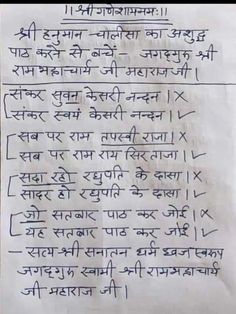 ।। श्री गणेशाय नमः ।।
श्री हनुमान चालीसा का अशुद्ध
पाठ करने से बचें - जगद्गुरु श्री
रामभद्राचार्य जी महाराज जी ।
संकर सुवन केसरी नन्दन । X
संकर स्वयं केसरी नन्दन । ✓
सब पर राम तपस्वी राजा । X
सब पर राम राय सिरताजा । ✓
सदा रहो रघुपति के दासा । X
सादर हो रघुपति के दासा । ✓
जो सतबार पाठ कर जोई । X
यह सतबार पाठ कर जोई । ✓
- सत्य श्री सनातन धर्म ध्वज स्वरूप
जगद्गुरु स्वामी श्री रामभद्राचार्य
जी महाराज जी ।